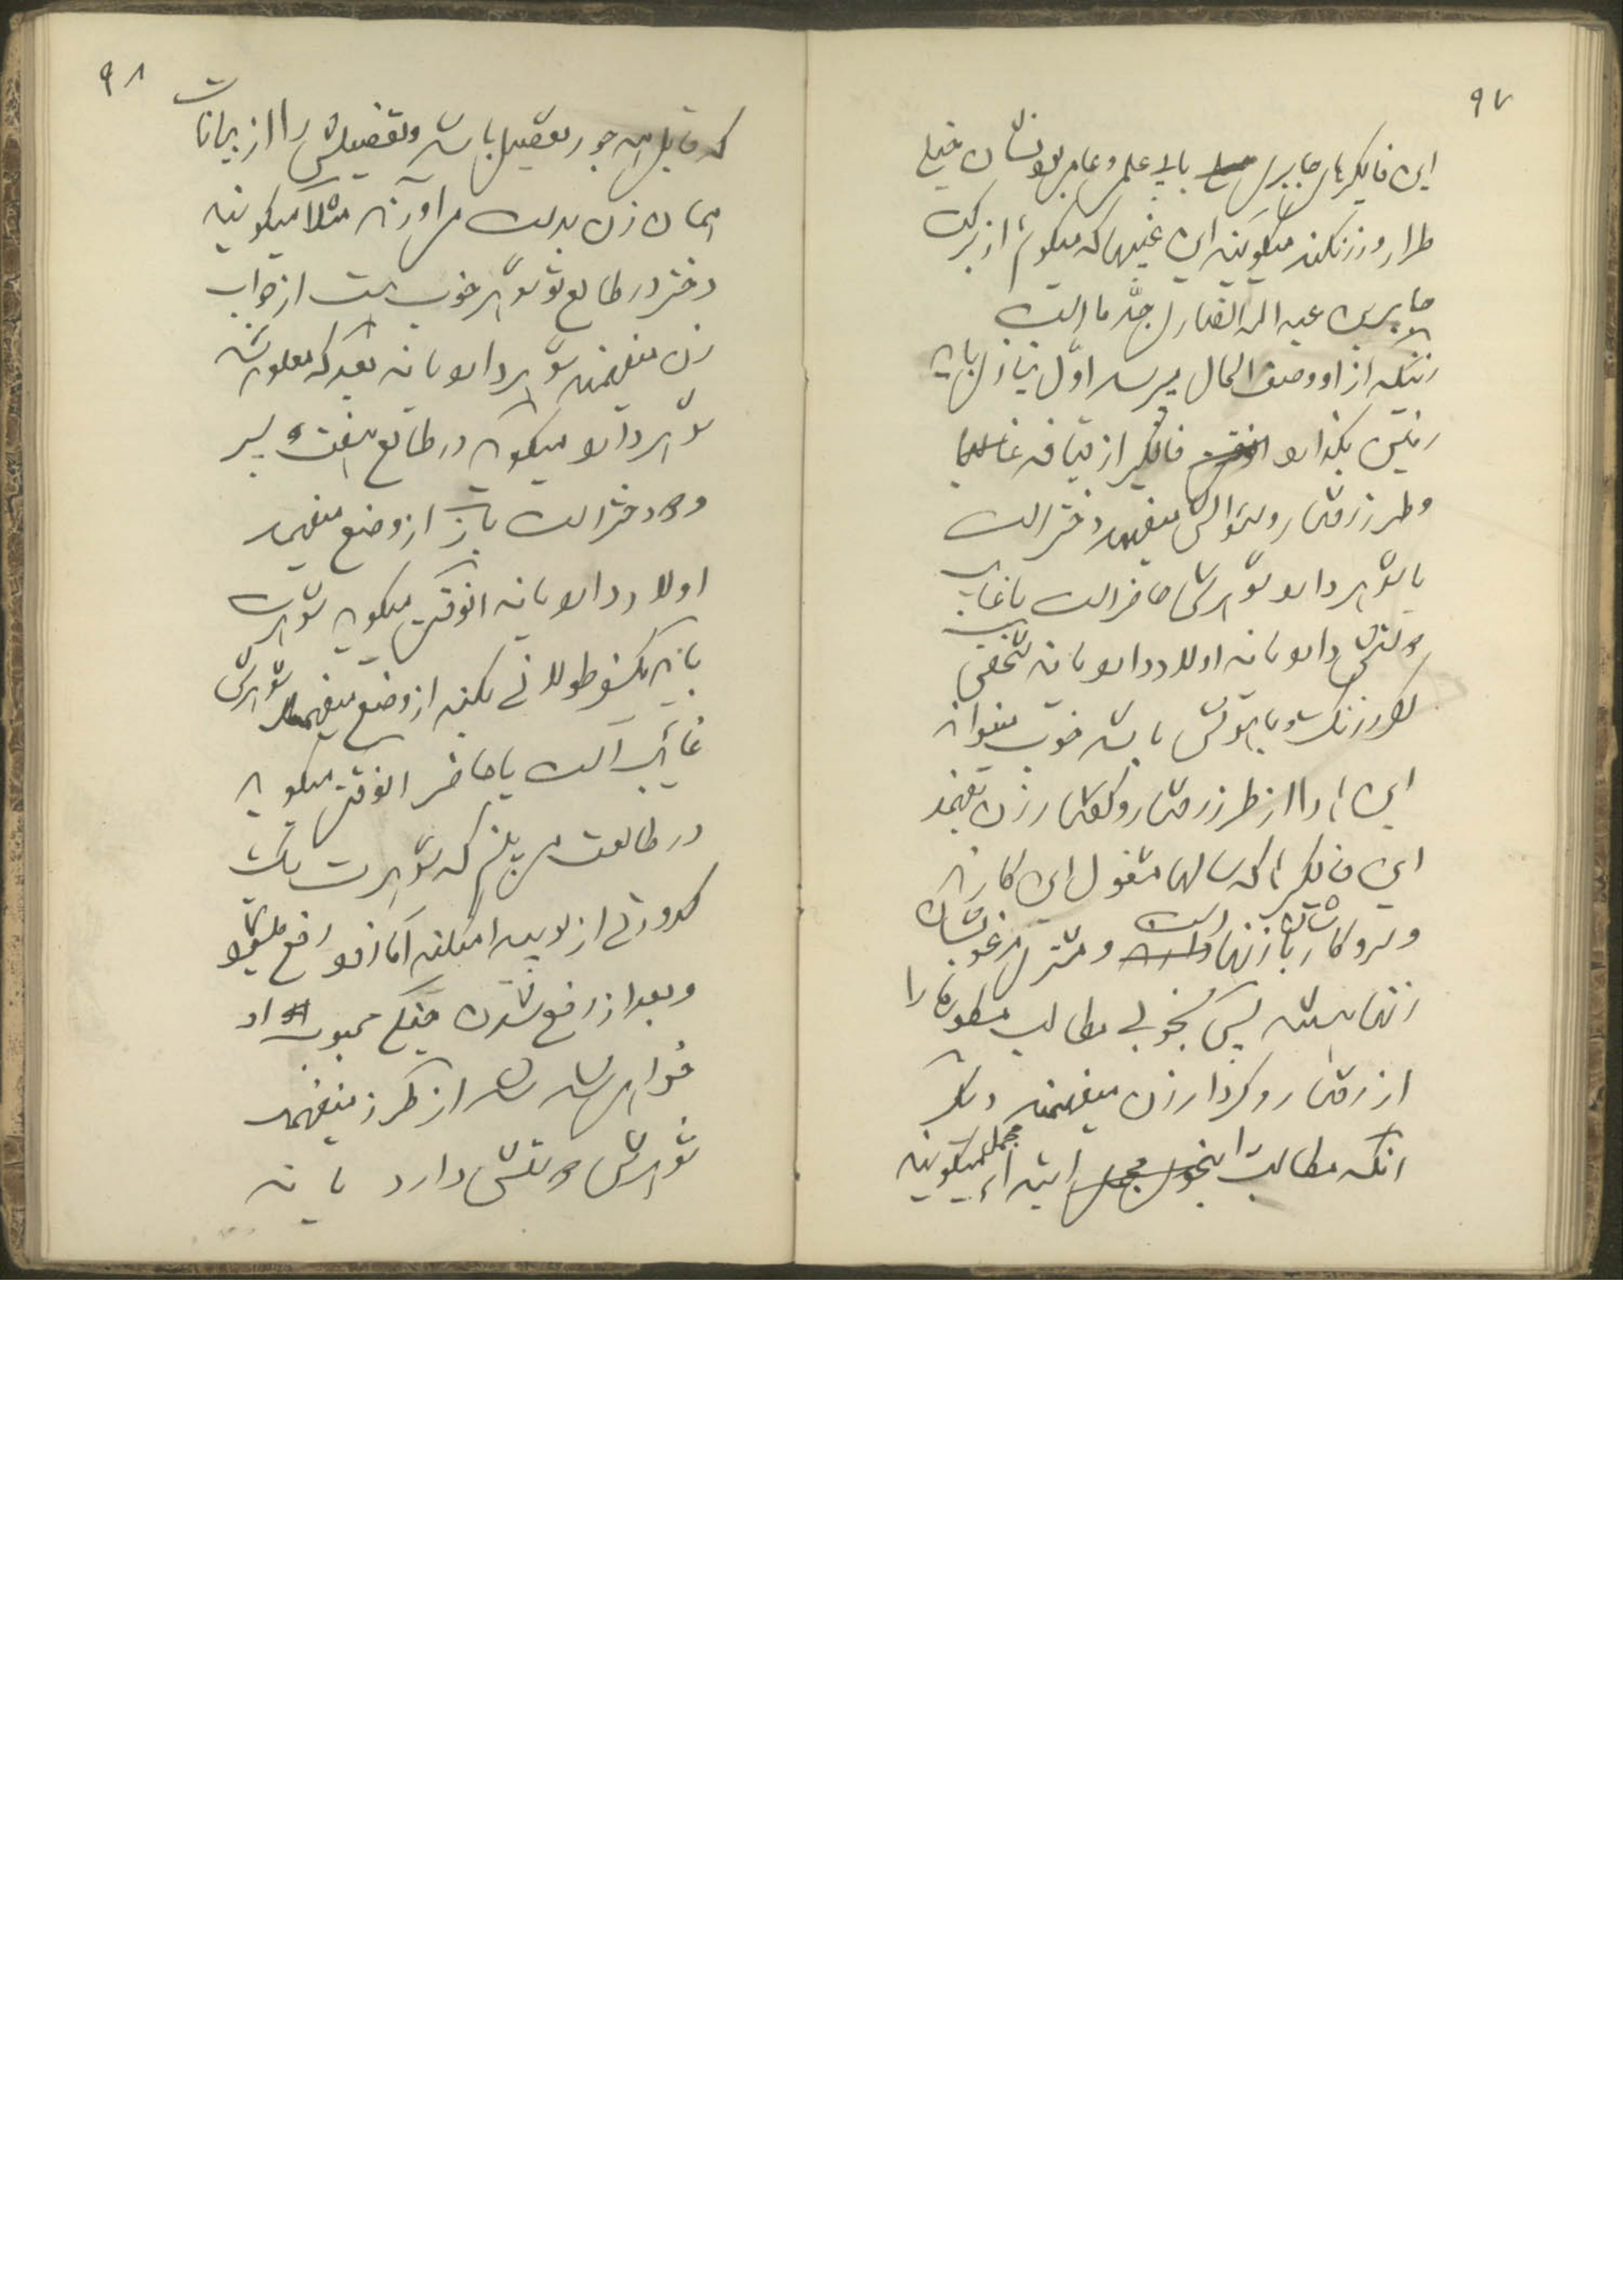 ۹۷
این فالگیرهای جابری با بی علمی و عامی بودنشان خیلی
طرار و زرنگند میگویند این غیبها که میگوئیم از برکت
جابر بن عبد الله انصاری جد ما است
زنیکه از او وصف الحال میپرسد اول نیازی باید
پیش بگذارد فالگیر از قیافه غالبا
و طرز رفتار و سؤالش میفهمد دختر است
یا شوهر دارد شوهرش حاضر است یا غایب
دارد یا نه اولاد دارد یا نه شخصی
زرنگ و با هوش باشد خوب میتواند
این ها را از طرز رفتار و گفتار زن بفهمد
این فالگیرها که سالها مشغول این کارند
و سر و کارشان با زنها است و مشتری مرغوبشان
زنها هستند پس بخوبی مطالب مسطوره را
از رفتار و کردار زن میفهمند دیگر
آنکه مطالب را ابتداء مجمل میگویند
۹۸
که قابل همه جور تفصیل باشد و تفصیلش را از بیانات
همان زن بدست می‌آورند مثلا میگویند
دختر در طالع تو شوهر خوب هست از جواب
زن میفهمند شوهر دارد یا نه بعد که معلوم شد
شوهر دارد میگوید در طالع هفت پسر
و دختر است باز از وضع میفهمد
اولاد دارد یا نه آنوقت میگوید شوهرت
باید یکسفر طولانی بکند از وضع میفهمد شوهرش
غائب است یا حاضر آنوقت میگوید
در طالعت می‌بینم که شوهرت یک
کدورتی از تو پیدا میکند اما زود رفع میشود
و بعد از رفع شدن خیلی محبوب او
خواهی شد از طرز میفهمد
شوهرش دارد یا نه